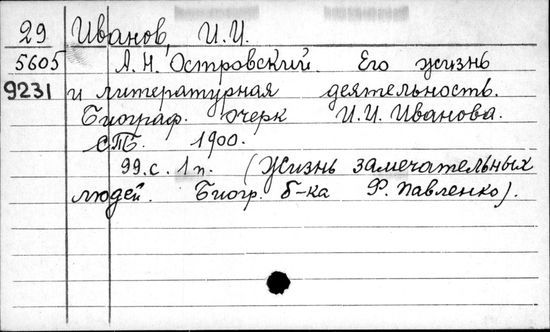 29 Иванов, И.И.
5605 А.Н. Островский. Его жизнь
9231 и литературная деятельность.
Биограф. очерк И.И. Иванова.
СПБ. 1900.
99 с. 1 п. (Жизнь замечательных
людей. Биогр. б-ка Ф. Павленко).